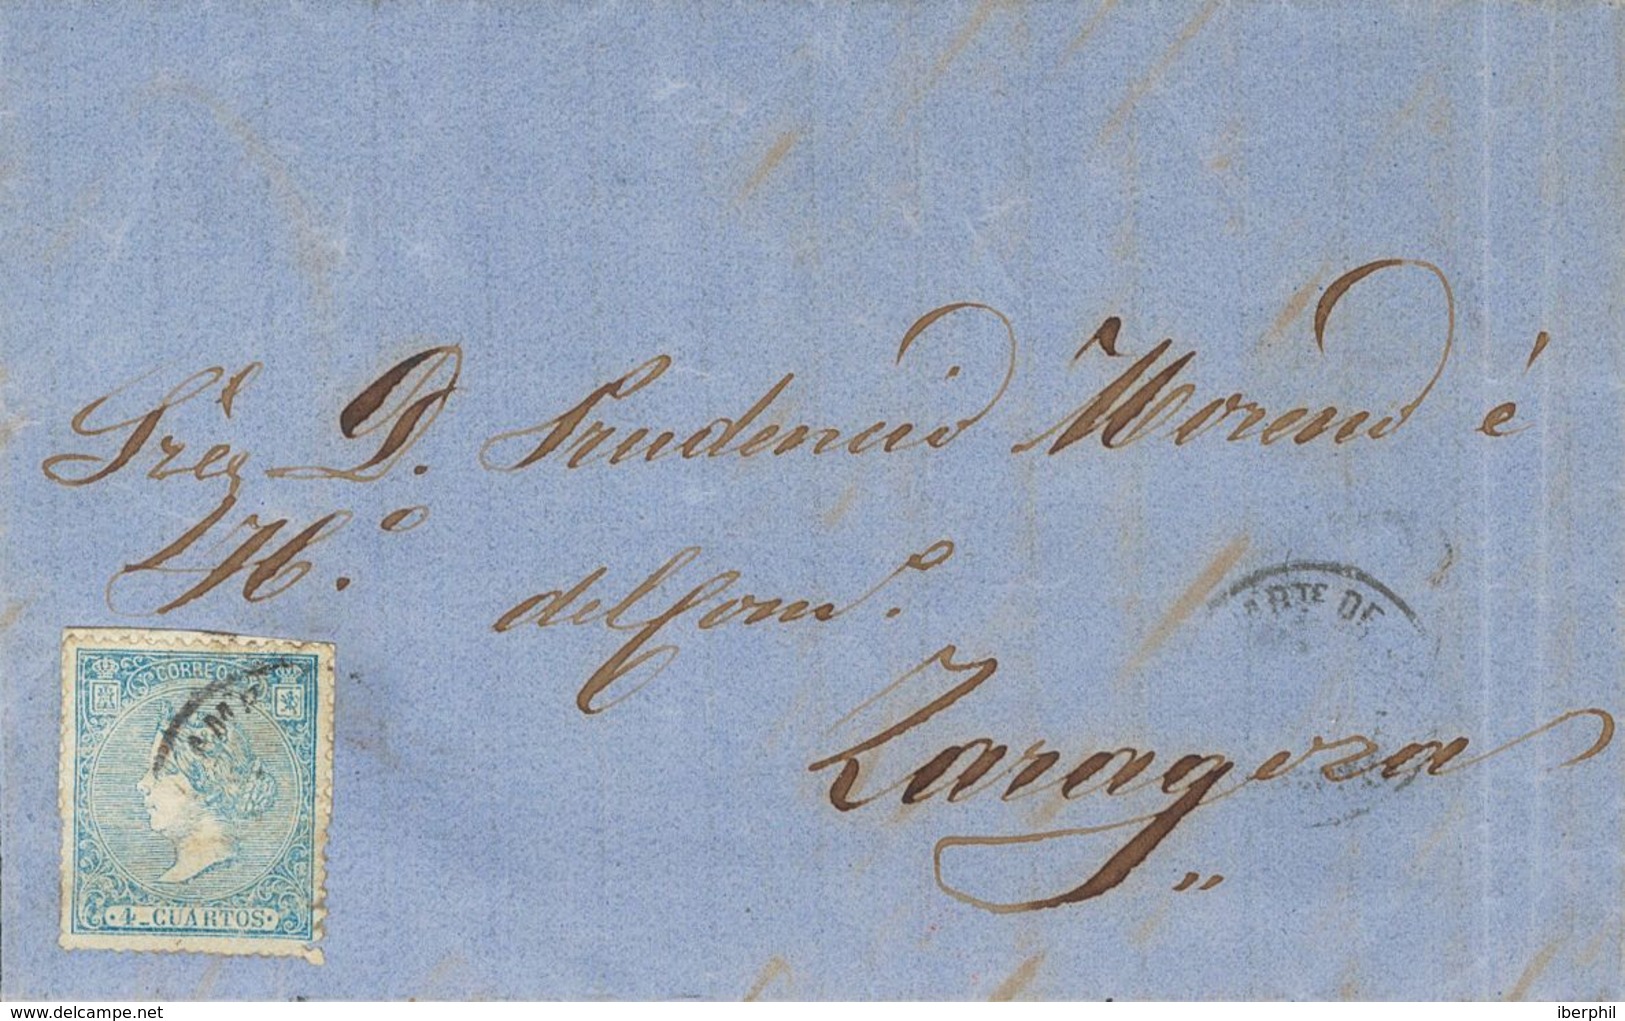 Sres D. Prudencio Moreno é
H.º
del Com.º
Zaragoza
ARTE DE
CORREOS
4 CUARTOS
www.delcampe.net
iberphil